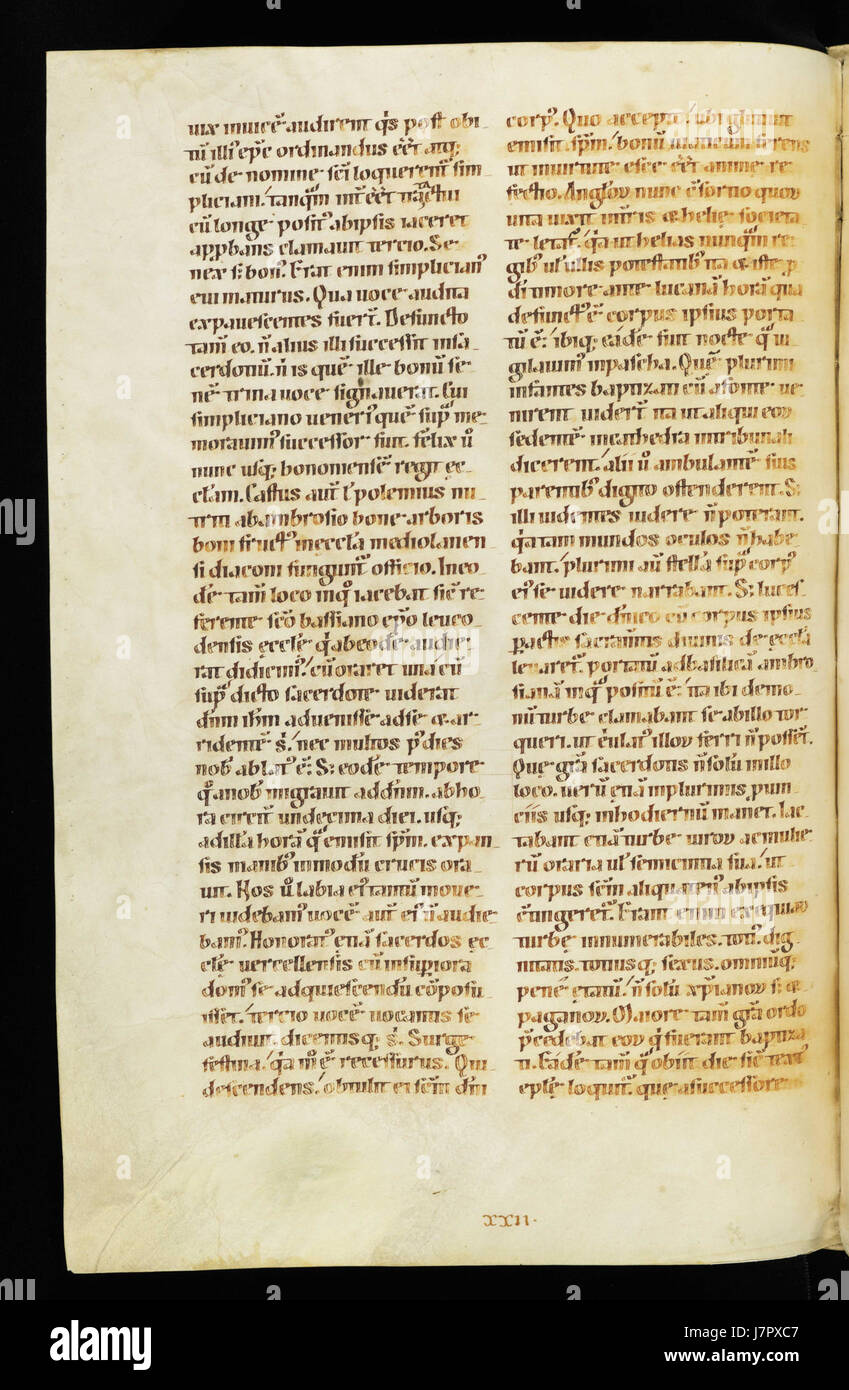 uix inuicē audirent q̇s post obi
tū illiꝰ ep̄c ordinandus eēt atq;
cū de nomine sc̄i loquerent᷑ sim
pliciani. tanquā int̄eēt
cū longe positꝰ ab ipsis iaceret
appbans clamauit tercio. Se
nex s; bonꝰ. Erat enim simplicianꝰ
eui maturus. Qua uoce audita
expauescentes fuer̄t. Defuncto
tam̄ eo. n̄ alius illi successit in sa
cerdotiū. n̄ is quē ille bonū se
nē trina uoce signauerat. Cui
simpliciano ueneriꝰ quē sup̄ me
morauimꝰ successor fuit. felix ū
nunc usq; bononiensē regit ec
clam. Castus aut̄ & polemius nu
triti ab ambrosio bone arboris
boni fructꝰ in eccla mediolanen
si diaconi fungunt᷑ officio. In eo
dē tam̄ loco in quo iacebat sic re
ferente sc̄o bassiano ep̄o leuco
densis ecclę q̇ ab eodē audie
rat didicimꝰ. cū oraret una cū
sup̄dicto sacerdote uiderat
dn̄m ih̄m aduenisse ad se & ar
ridentē ṡ. nec multos p̄ dies
nobꝰ ablatꝰ ē. S; eodē tempore
q̇ a nobꝰ migrauit ad dn̄m. ab ho
ra circit̄ undecima diei. usq;
ad illā horā q̇ emisit sp̄m. expan
sis manibꝰ in modū crucis ora
uit. Nos ū labia eiꝰ tantū moue
ri uidebamꝰ uocē aut̄ eiꝰ n̄ audie
bamꝰ. Honoratꝰ etiā sacerdos ec
clę uercellensis cū in supiora
domꝰ se ad quiescendū cōposu
isset. tercio uocē uocantis se
audiuit. dicentisq; ṡ. Surge
festina. q̇a m̊ ē recessurus. Qui
descendens. obtulit ei sc̄m dn̄i
corpꝰ. Quo accepto. ubi glutiuit
emisit sp̄m. bonū uiaticum ferens
ut in uirtute escę eēt anime re
fectio. Anglov nunc ̄sortio quov
uita uixit in t̄ris & helie societa
te letat᷑. q̇a ut helias nunquā re
gibꝰ ul̓ ullis potestatibꝰ ita & iste p
di timore ante lucanā horā qua
defunctꝰ ē corpus ipsius porta
tū ē. ibiq; eadē fuit nocte q̇ ui
gilauimꝰ in pascha. Quē plurimi
infantes baptizati cū a fonte ue
nirent uider̄t ita ut aliqui eov
sedentē in cathedra in tribunali
dicerent. alii ū ambulantē suis
parentibꝰ digito ostenderent. S;
illi uidentes uidere n̄ poterant.
q̇a tam mundos oculos n̄ habe
bant. plurimi aū stellā sup̄ corpꝰ
eiꝰ se uidere narrabant. S; luces
cente die dn̄ico cū corpus ipsius
pactis sacram̄tis diuinis de eccla
leuaret᷑. portandū ad basilicā ambro
sianā in q̇ positū ē. ita ibi demo
nū turbe clamabant se ab illo tor
queri. ut eiulatꝰ illov ferri n̄ possēt.
Que grā sacerdotis n̄ solū in illo
loco. uerū etiā in plurimis puin
ciis usq; in hodiernū manet. Iac
tabant etiā turbe uirov ac mulie
rū oraria ul̓ semicintia sua. ut
corpus sc̄m aliquatenꝰ ab ipsis
̄tingeret᷑. Erant enim exequiav
turbę innumerabiles. totiꝰ dig
nitatis. totiusq; sexus. omniūq;
penē etatū. n̄ solū xp̄ianov s; &
paganov. Maiore tam̄ grā ordo
p̄cedebat eov q̇ fuerant baptiza
ti. Eadē tam̄ q̇ obiit die sic text̉
eplę loquit᷑. quę a successore
XXII.